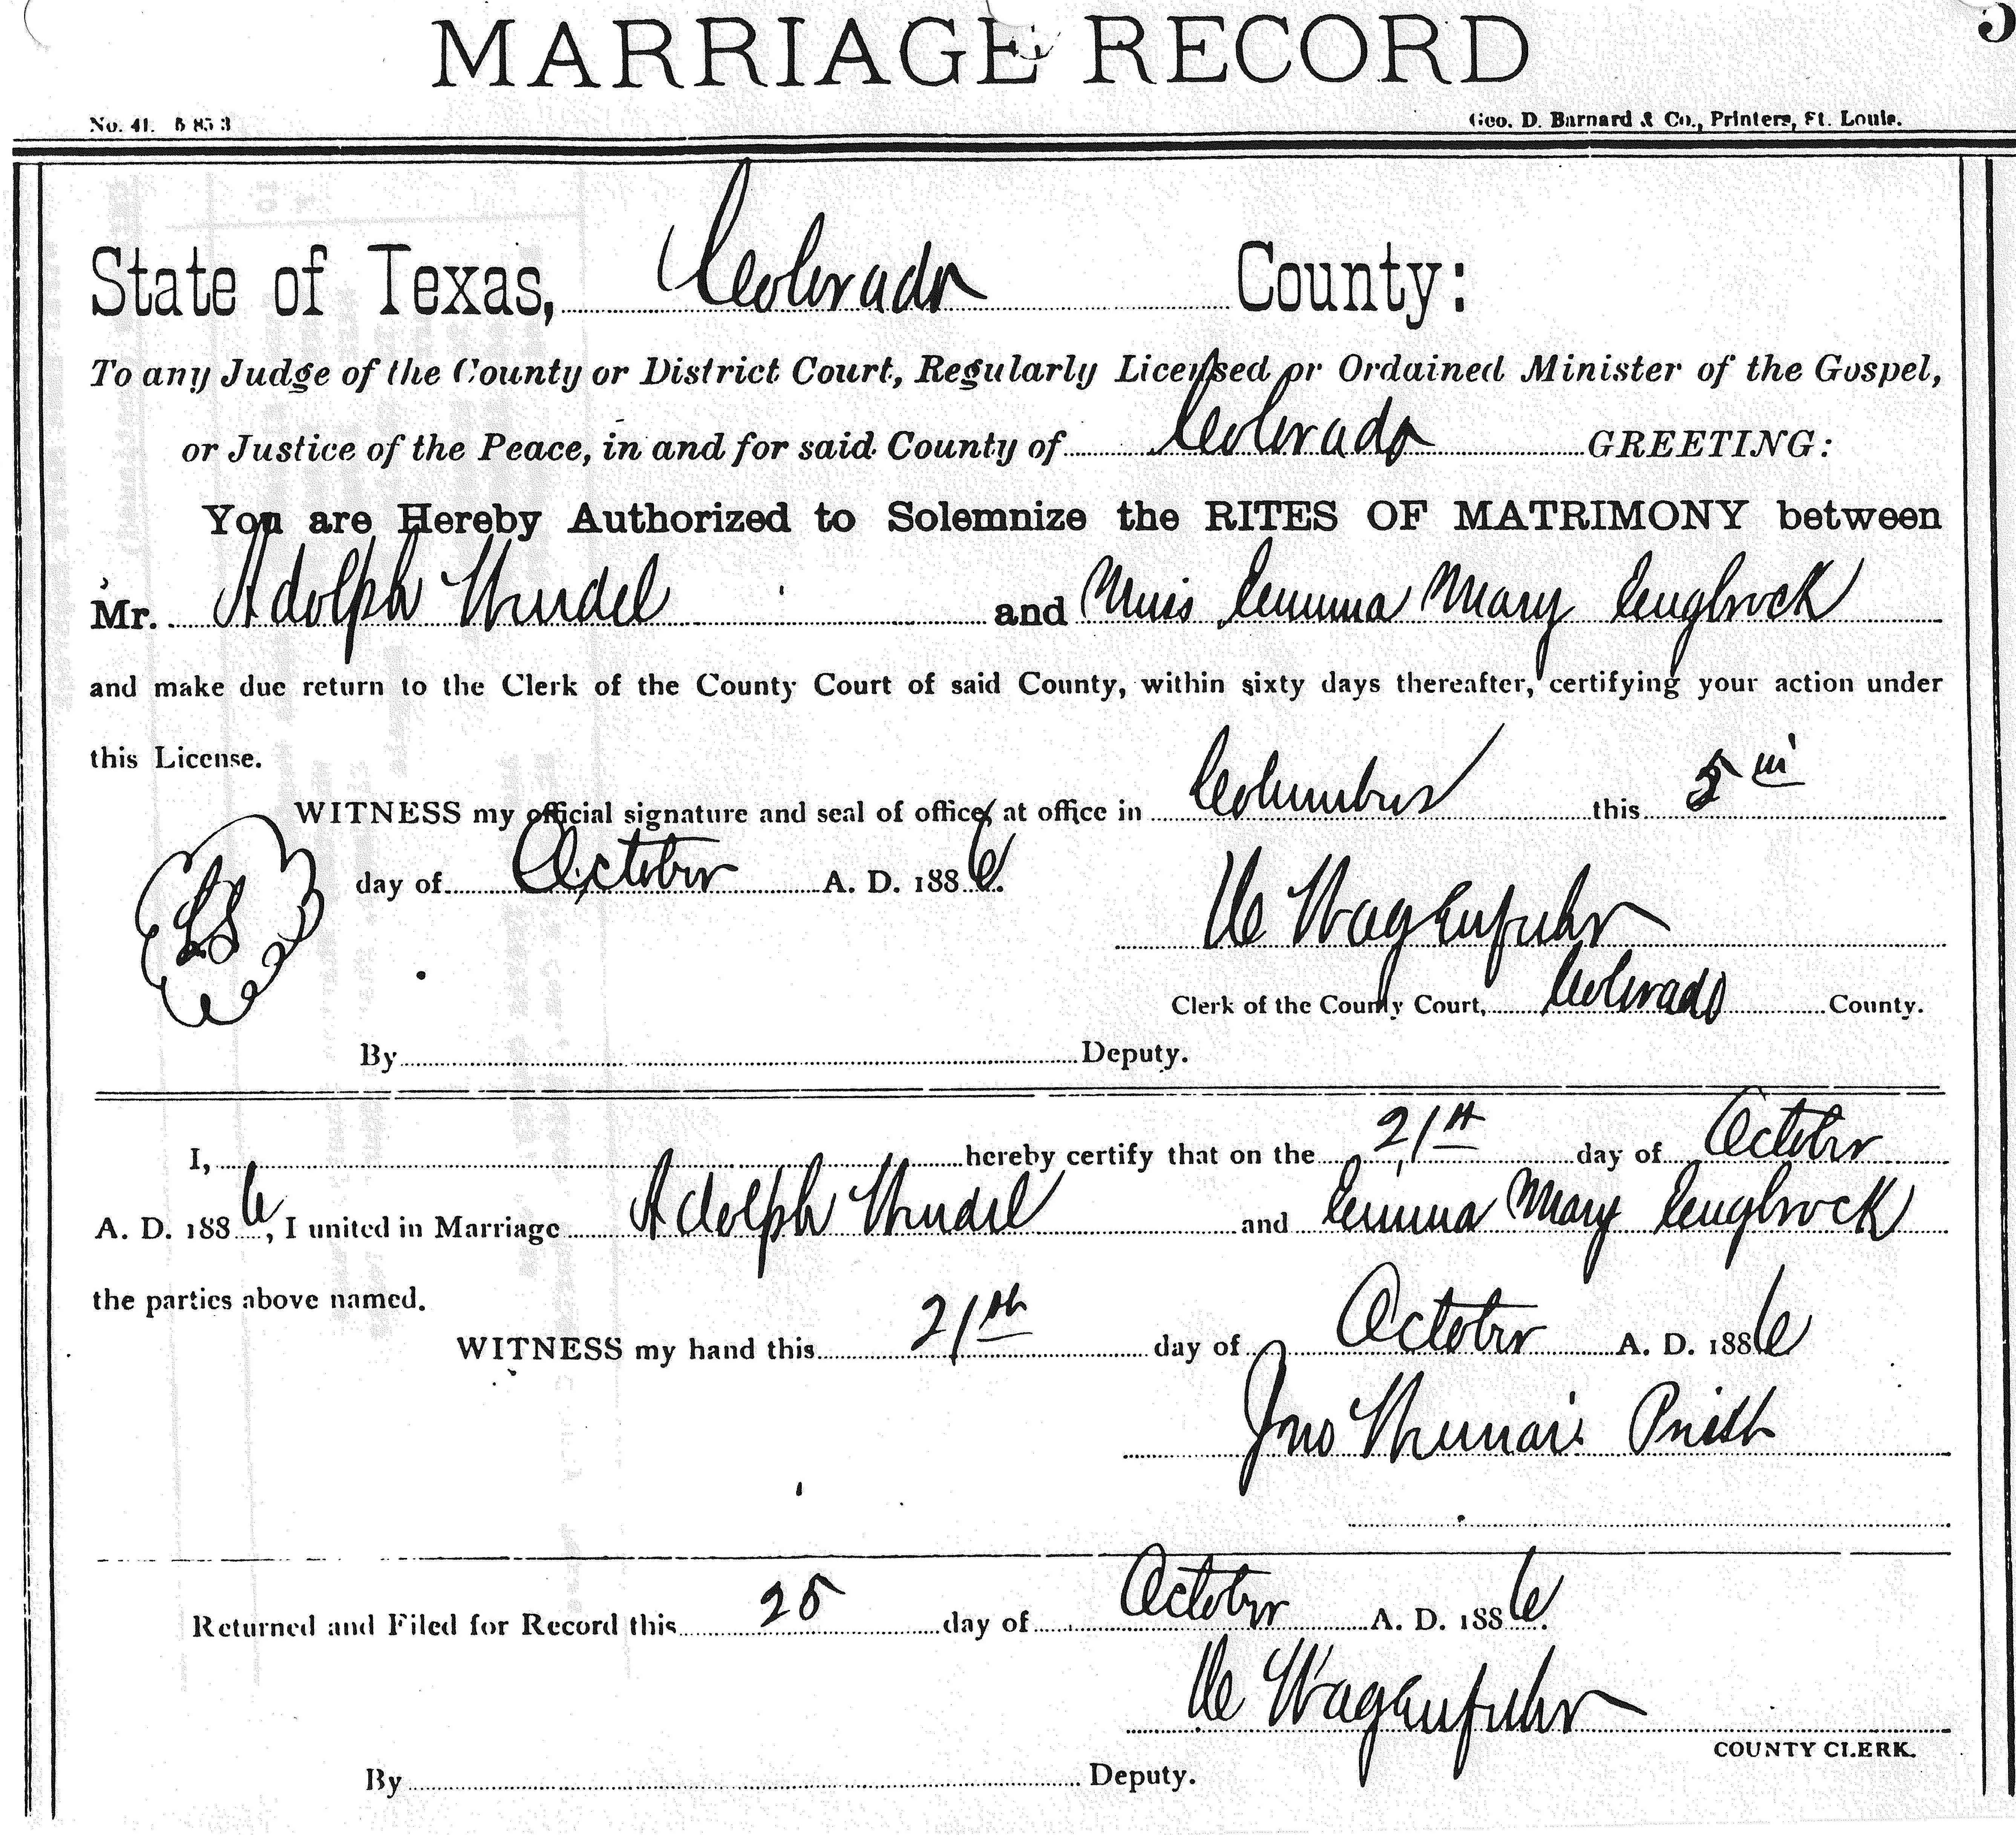 MARRIAGE RECORD
No. 41. 5 85 3 Geo. D. Barnard & Co., Printers, St. Louis.
State of Texas, Colorado County:
To any Judge of the County or District Court, Regularly Licensed or Ordained Minister of the Gospel,
or Justice of the Peace, in and for said County of Colorado GREETING:
You are Hereby Authorized to Solemnize the RITES OF MATRIMONY between
Mr. Adolph and Miss Emma Mary Engbrock
and make due return to the Clerk of the County Court of said County, within sixty days thereafter, certifying your action under
this License.
WITNESS my official signature and seal of office, at office in Columbus this 5th
day of October A. D. 1886.
LS
Wagenfuhr
Clerk of the County Court, Colorado County.
By Deputy.
I, hereby certify that on the 21st day of October
A. D. 1886, I united in Marriage Adolph and Emma Mary Engbrock
the parties above named.
WITNESS my hand this 21th day of October A. D. 1886
Jno Priest
Returned and Filed for Record this 25 day of October A. D. 1886.
Wagenfuhr
COUNTY CLERK.
By Deputy.